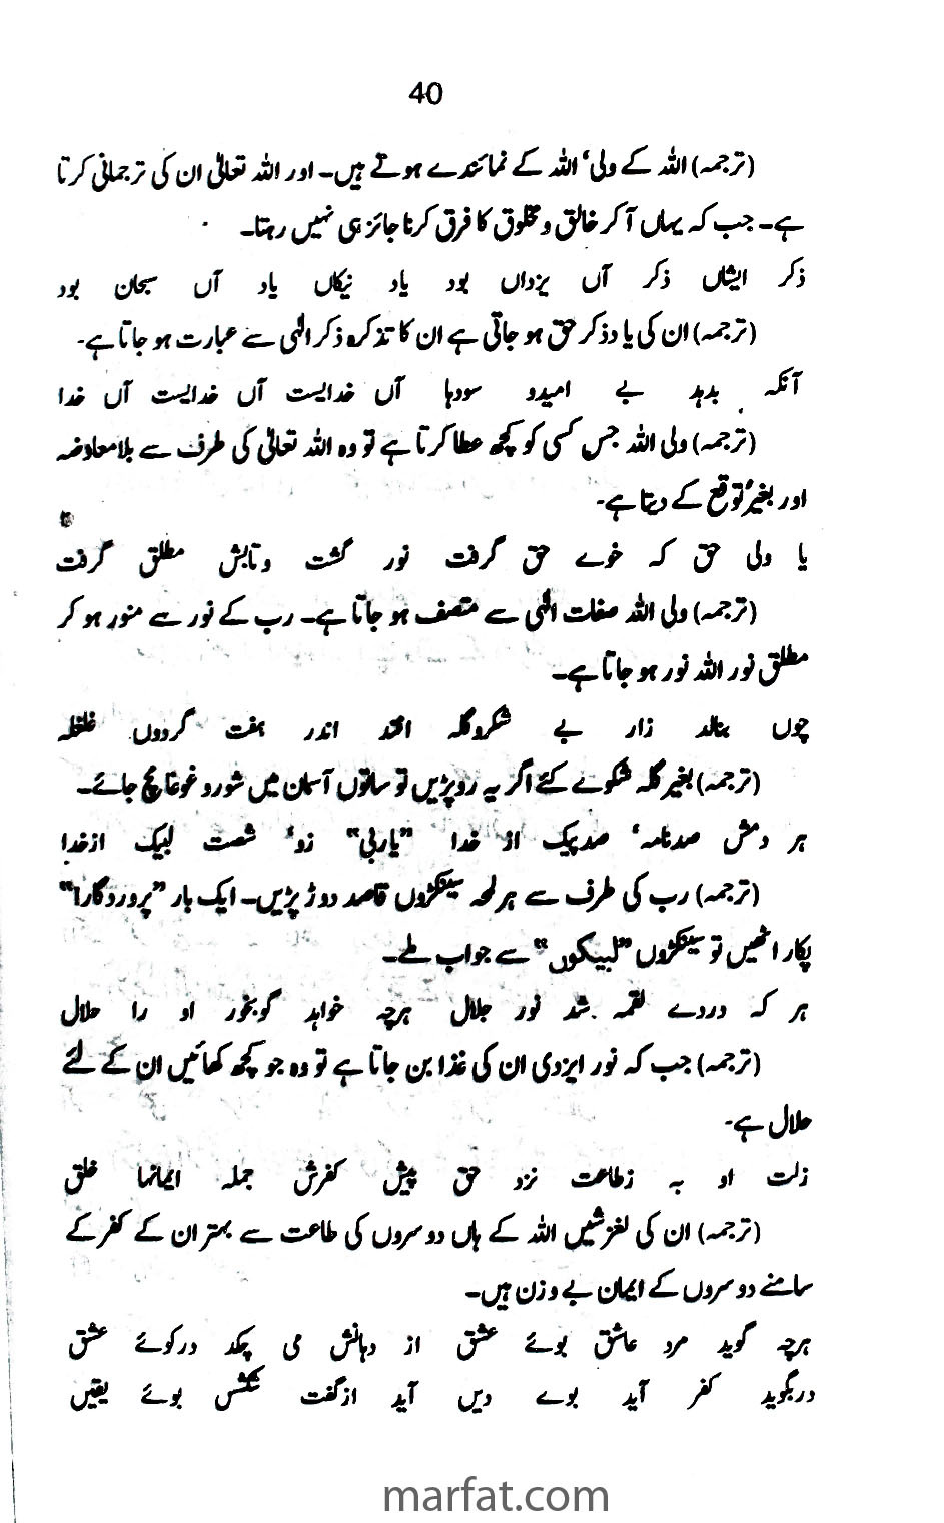 40
(ترجمہ) اللہ کے ولی' اللہ کے نمائندے ہوتے ہیں۔ اور اللہ تعالیٰ ان کی ترجمانی کرتا
ہے۔ جب کہ یہاں آ کر خالق و مخلوق کا فرق کرنا جائز ہی نہیں رہتا۔
ذکر ایشاں ذکر آں یزداں بود یاد نیکاں یاد آں سبحان بود
(ترجمہ) ان کی یاد ذکر حق ہو جاتی ہے ان کا تذکرہ ذکر الٰہی سے عبارت ہو جاتا ہے۔
آنکہ بدہد بے امیدو سودہا آں خدایست آں خدایست آں خدا
(ترجمہ) ولی اللہ جس کسی کو کچھ عطا کرتا ہے تو وہ اللہ تعالیٰ کی طرف سے بلامعاوضہ
اور بغیر توقع کے دیتا ہے۔
یا ولی حق کہ خوے حق گرفت نور گشت و تابش مطلق گرفت
(ترجمہ) ولی اللہ صفات الٰہی سے متصف ہو جاتا ہے۔ رب کے نور سے منور ہو کر
مطلق نور اللہ نور ہو جاتا ہے۔
چوں بنالد زار بے شکروگلہ افتد اندر ہفت گردوں غلغلہ
(ترجمہ) بغیر گلہ شکوے کئے اگر یہ رو پڑیں تو ساتوں آسمان میں شور و غوغا مچ جائے۔
ہر دمش صدنامہ' صدپیک از خدا "یاربی" زو' شصت لبیک ازخدا
(ترجمہ) رب کی طرف سے ہر لمحہ سینکڑوں قاصد دوڑ پڑیں۔ ایک بار "پروردگارا"
پکار اٹھیں تو سینکڑوں "لبیکوں" سے جواب ملے۔
ہر کہ دردے لقمہ شد نور جلال ہرچہ خواہد گوبخور او را حلال
(ترجمہ) جب کہ نور ایزدی ان کی غذا بن جاتا ہے تو وہ جو کچھ کھائیں ان کے لئے
حلال ہے۔
زلت او بہ زطاعت نزد حق پیش کفرش جملہ ایمانہا خلق
(ترجمہ) ان کی لغزشیں اللہ کے ہاں دوسروں کی طاعت سے بہتر ان کے کفر کے
سامنے دوسروں کے ایمان بے وزن ہیں۔
ہرچہ گوید مرد عاشق بوئے عشق از دہانش می چکد درکوئے عشق
دربگوید کفر آید بوے دیں آید ازگفت بوئے یقیں
marfat.com